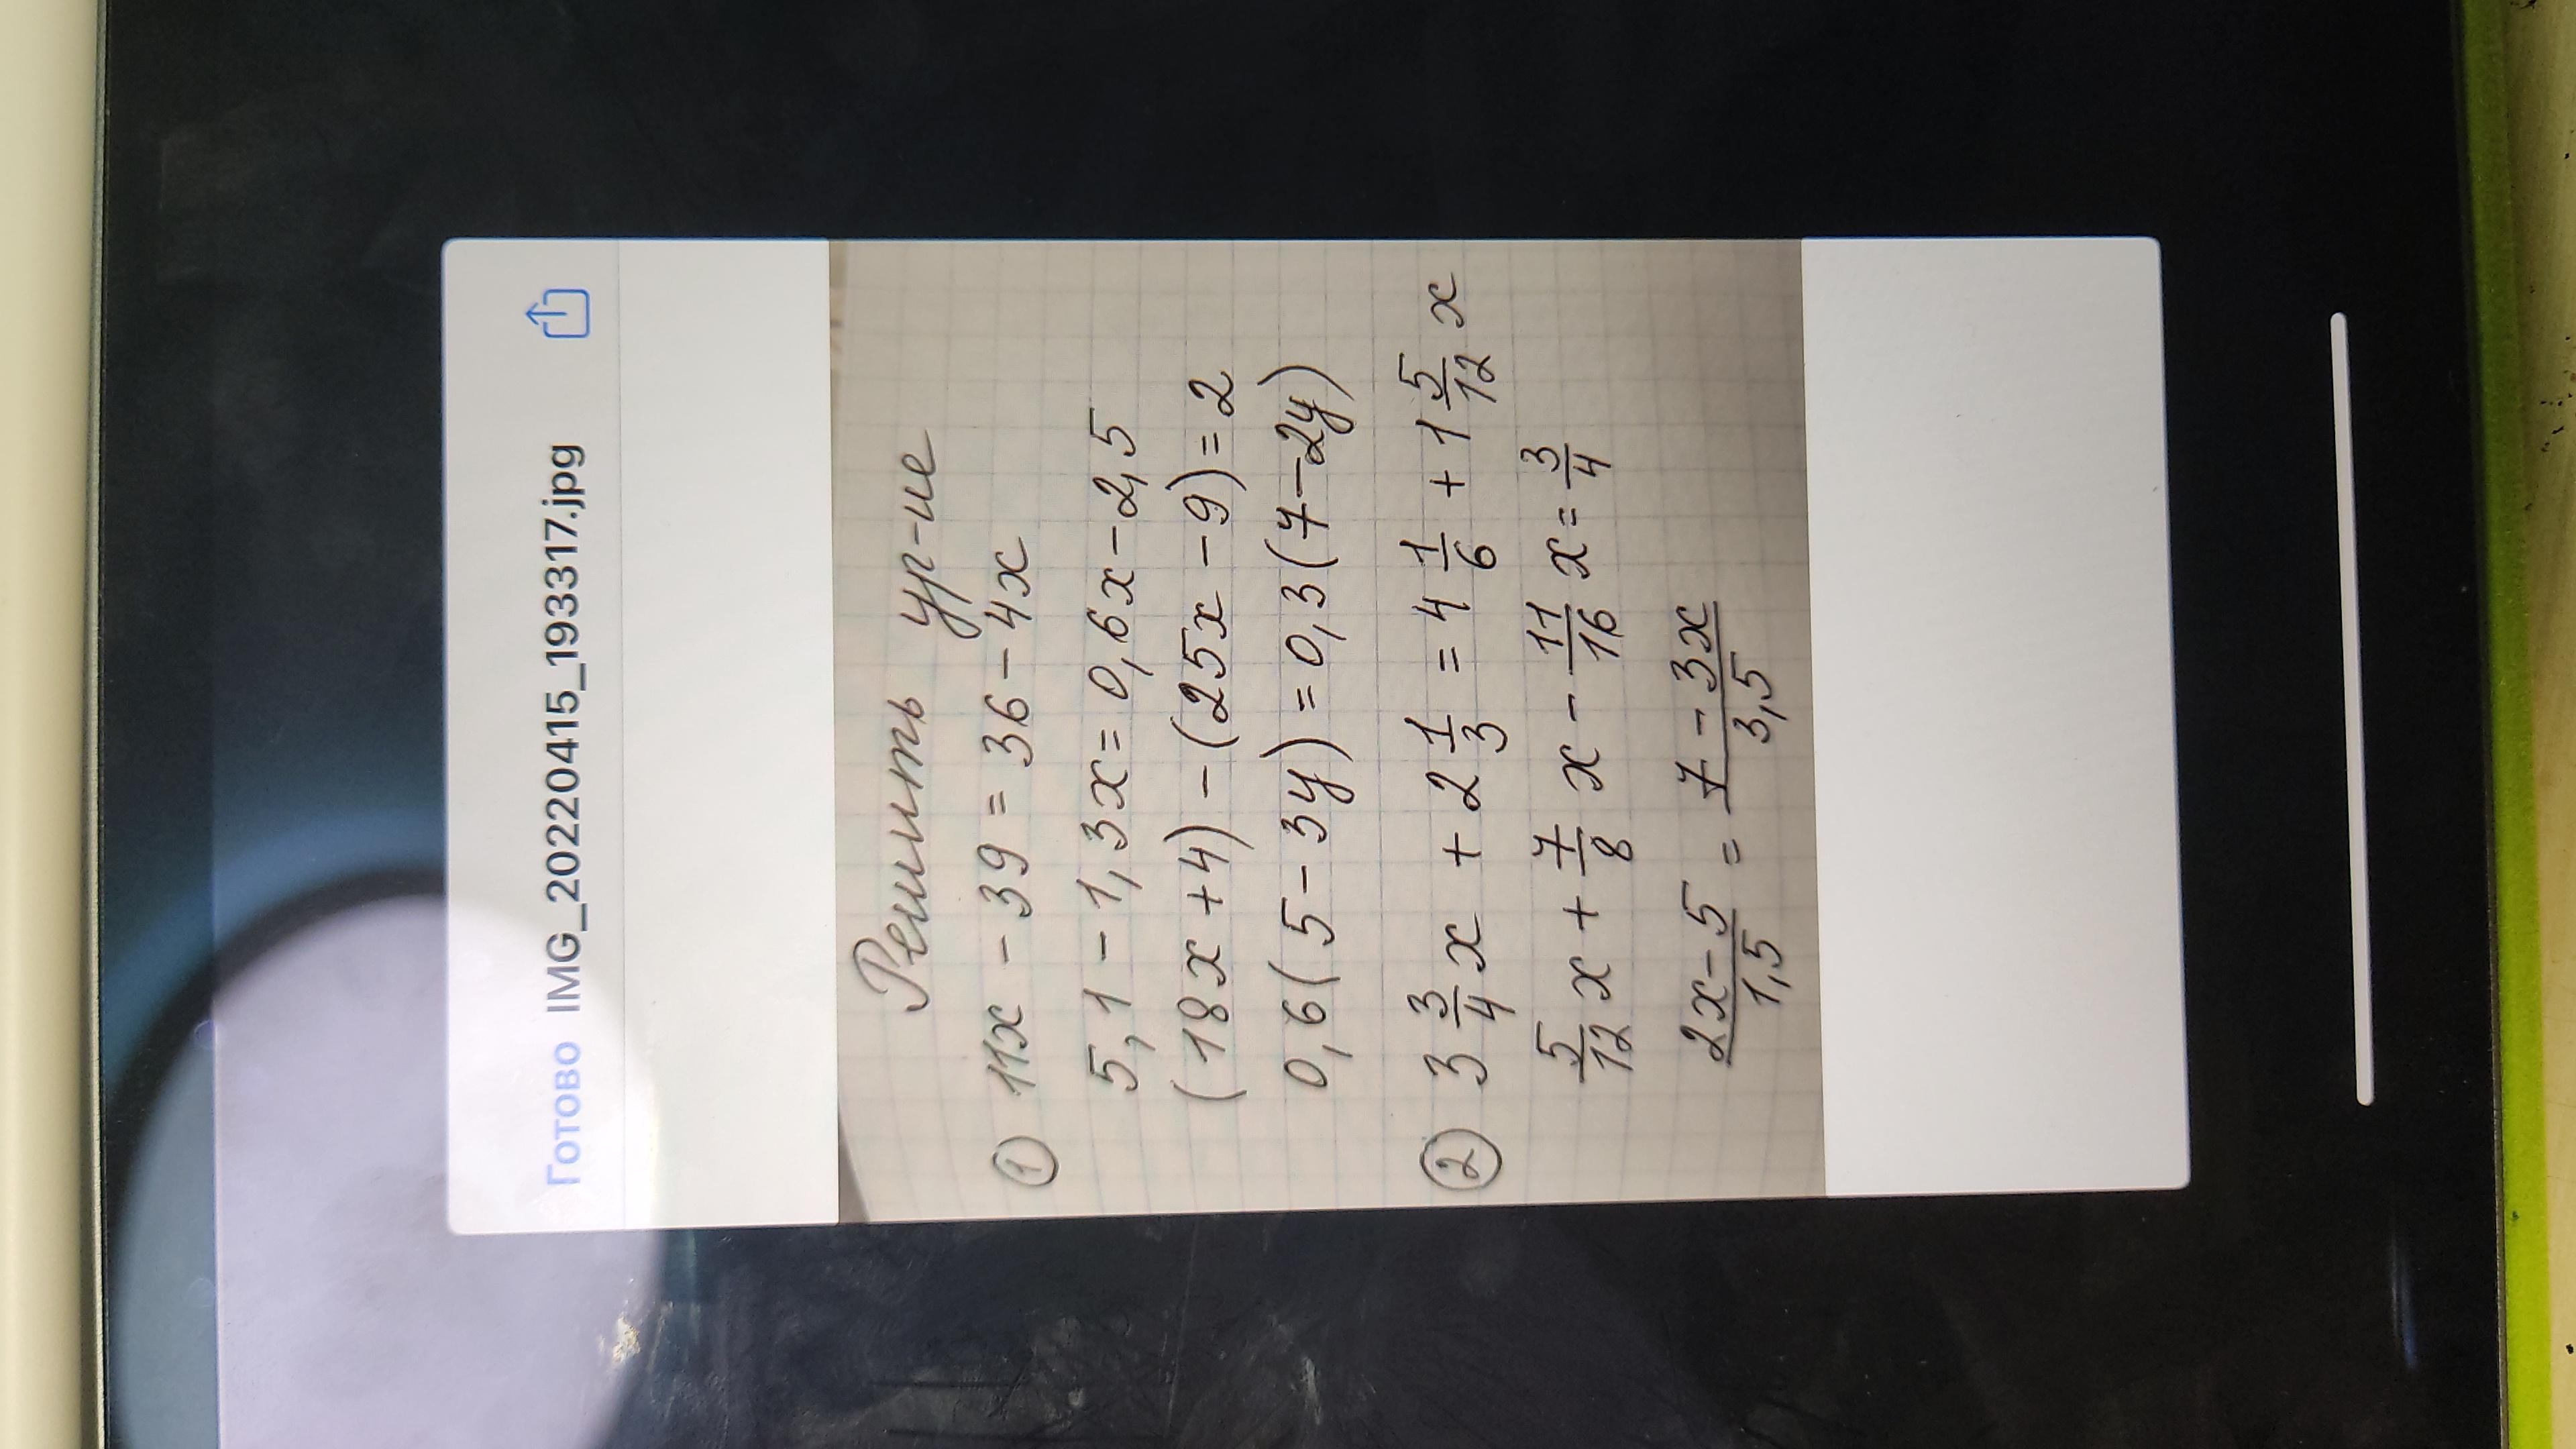 Готово IMG_20220415_193317.jpg
Решить ур-ие
① 11x - 39 = 36 - 4x
5,1 - 1,3x = 0,6x - 2,5
(18x + 4) - (25x - 9) = 2
0,6(5 - 3y) = 0,3(7 - 2y)
② 3 3/4 x + 2 1/3 = 4 1/6 + 1 5/12 x
5/12 x + 7/8 x - 11/16 x = 3/4
2x - 5 / 1,5 = 7 - 3x / 3,5